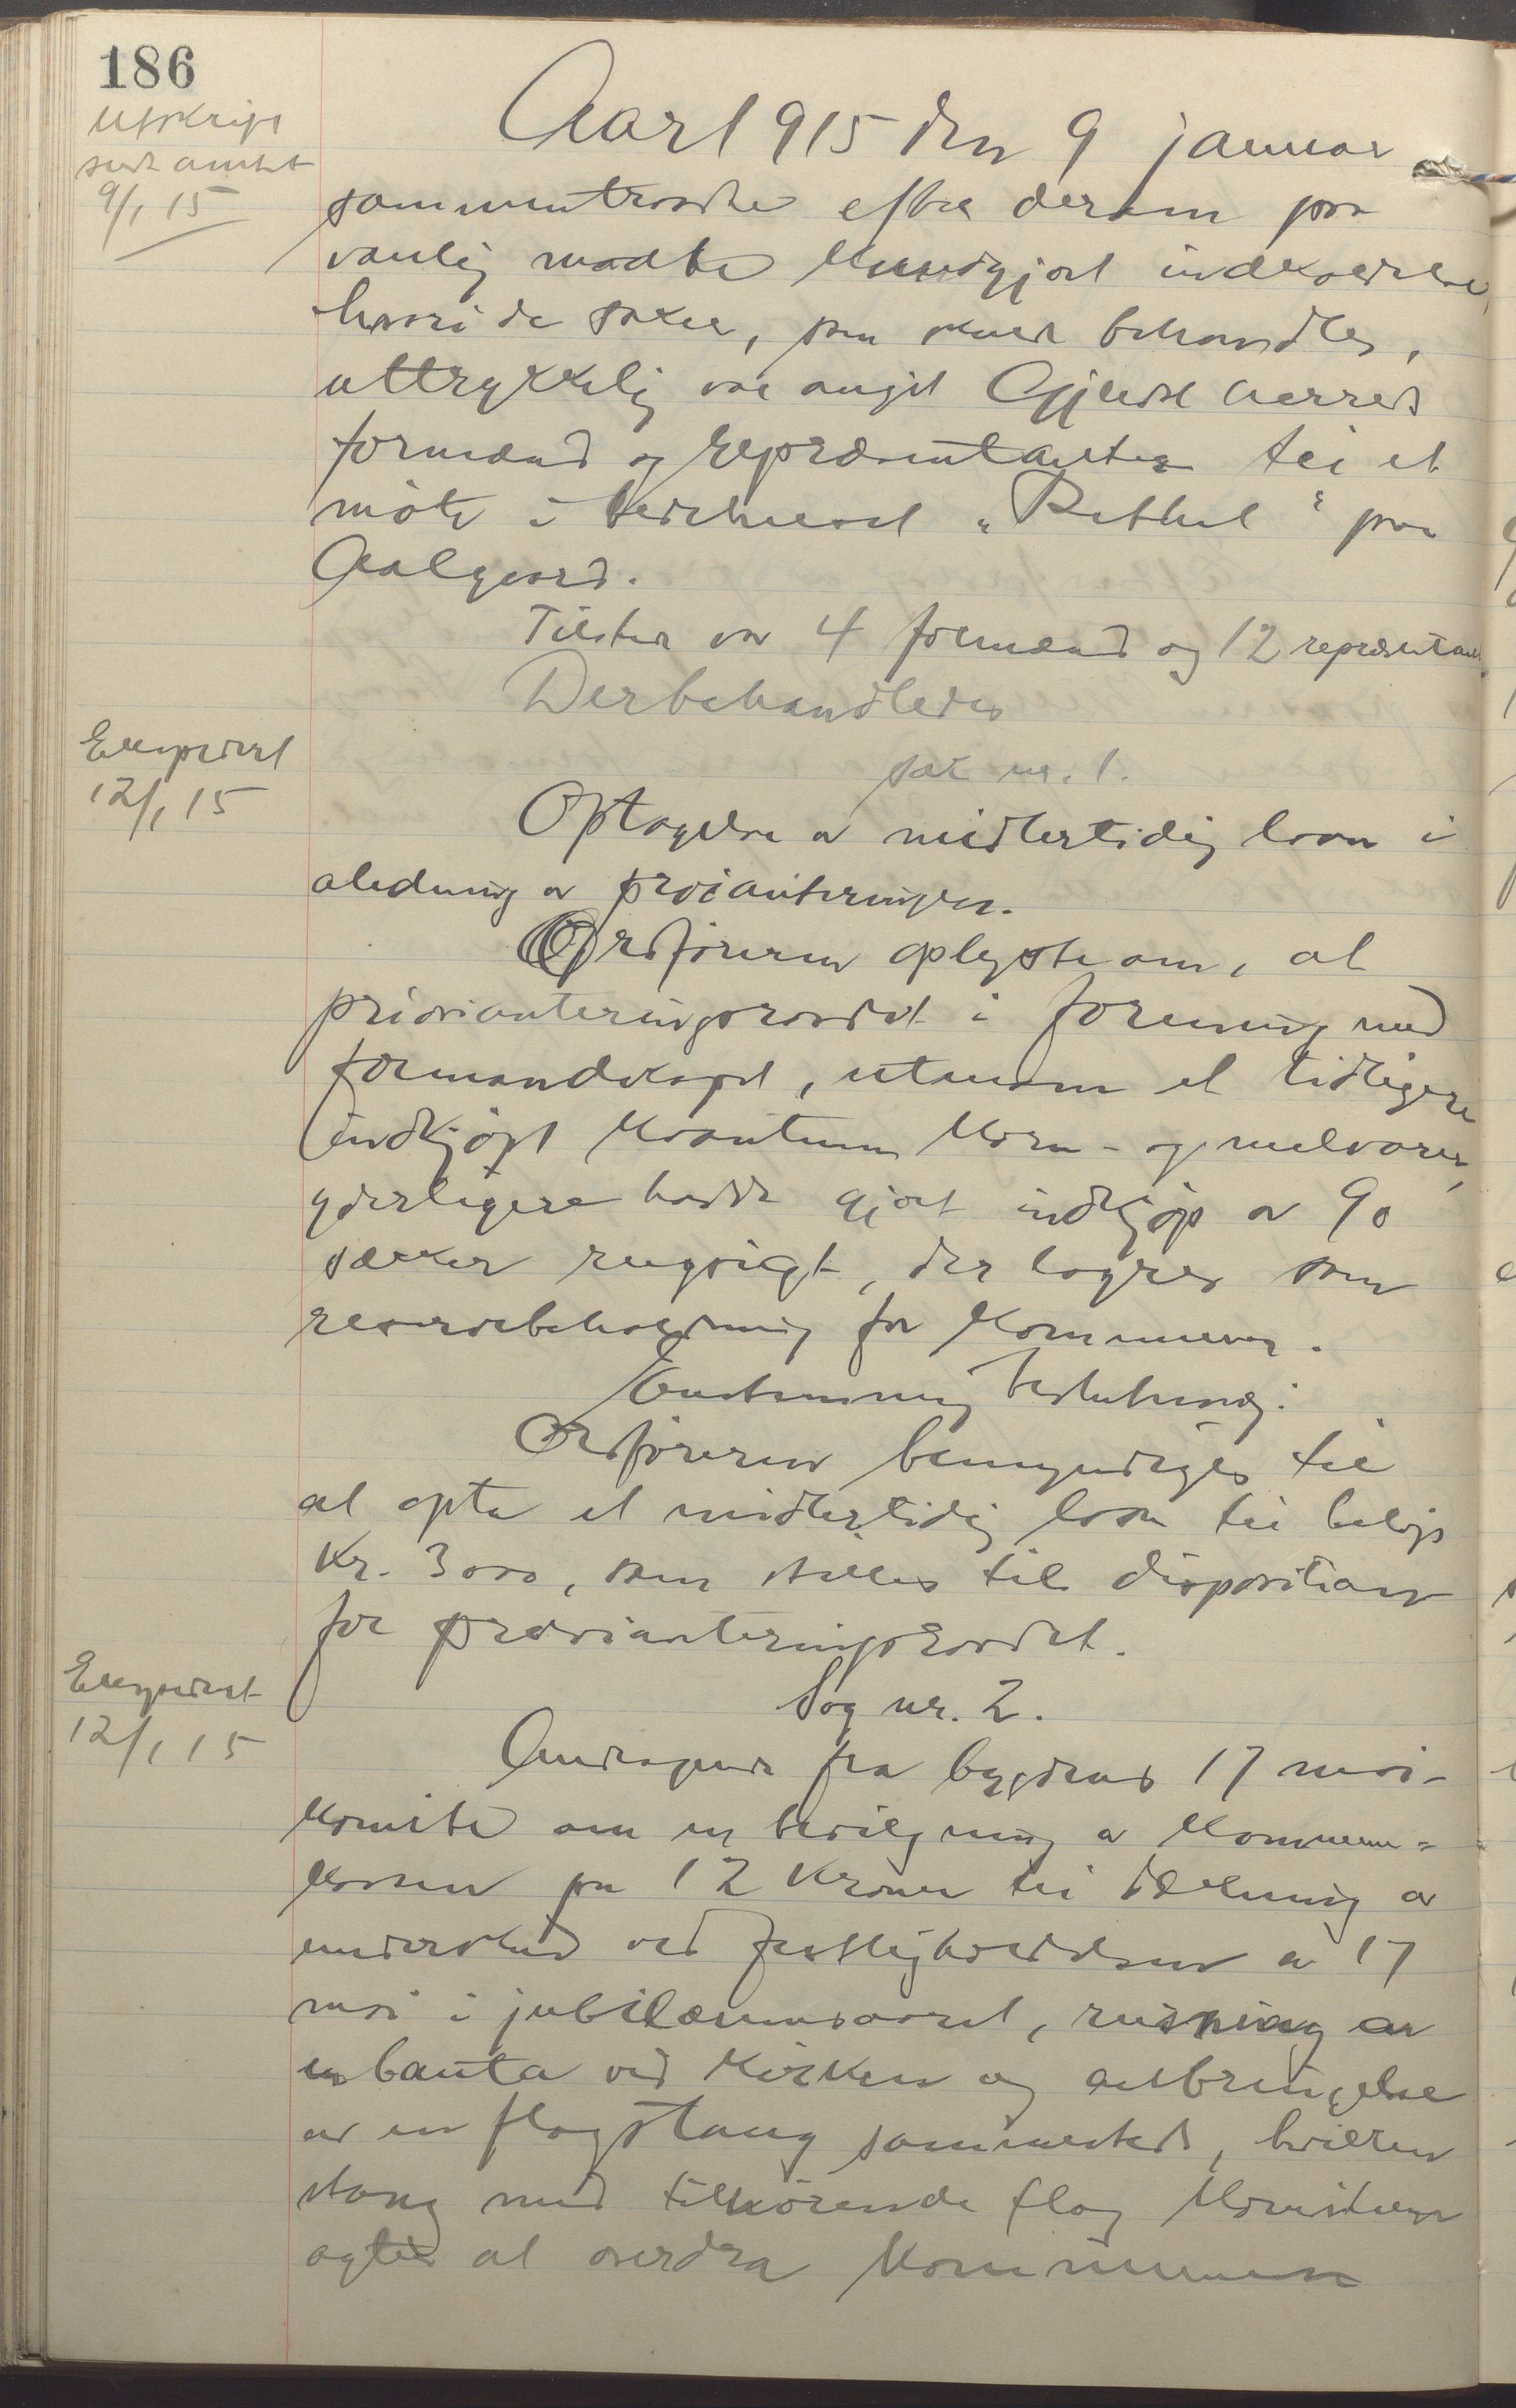 186
Utskrift
sendt amtet
9/1 15
Aar 1915 den 9 januar
sammentraadte efter derom paa
vanlig maate kundgjort indkaldelse,
hvori de saker, som skuld behandles,
uttrykkelig var angit Gjesdal herreds
formænd og repræsentanter til et
møte i bedehuset "Bethel" paa
Aalgaard.
Tilstede var 4 formænd og 12 repræsentanter
Der behandledes
Ekspedert
12/1 15
sak nr. 1.
Optagelse av midlertidig laan i
aledning av provianteringen.
Ordføreren oplyste om, at
priovianteringsraadet i forening med
formandskapet, utenom et tidligere
indkjøpt kvantum korn- og melvarer,
yderligere hadde gjort indkjøp av 90
sækker rugsigt, der lagres som
reservebeholdning for kommunen.
Enstemmig beslutning:
Ordføreren bemyndiges til
at opta et midlertidig laan til beløp
Kr. 3000, som stilles til disposition
for provianteringsraadet.
Ekspedert
12/1 15
Sag nr. 2.
Andragende fra bygdens 17 mai-
komite om en bevilgning av kommune-
kassen paa 12 kroner til dækning av
underskud ved festligholdelsen av 17
mai i jubilæumsaaret, reisning av
en bauta ved kirken og anbringelse
av en flagstang sammesteds, hvilken
stang med tilhørende flag komiteen
agter at overdra kommunen